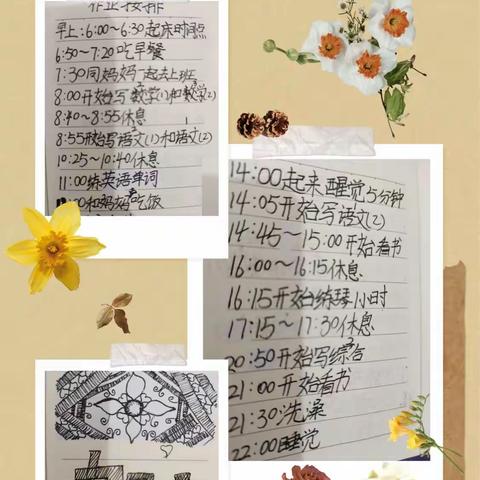 作业安排
早上:6:00~6:30起床时间点
6:50~7:20吃早餐
7:30同妈妈一起去上班
8:00开始写数学(1)和数学(2)
8:40~8:55休息
8:55开始写语文(1)和语文(2)
10:25~10:40休息
11:00练英语单词
00和妈妈去吃饭
14:00起来醒觉5分钟
14:05开始写语文(2)
14:45~15:00开始看书
16:00~16:15休息
16:15开始练琴1小时
17:15~17:30休息
20:50开始写综合
21:00开始看书
21:30洗澡
22:00睡觉